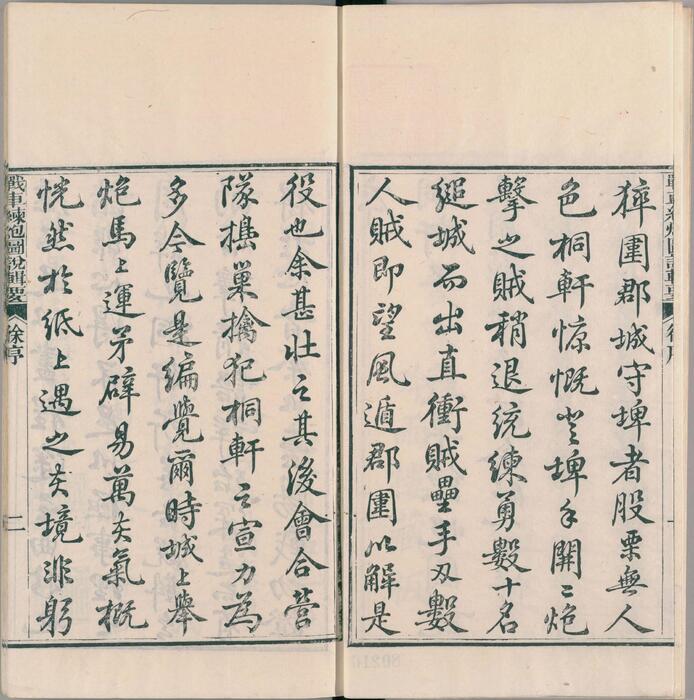 猝圍郡城守埤者股栗無人
色桐軒慷慨登埤手開二炮
擊之賊稍退統練勇數十名
縋城而出直衝賊壘手刃數
人賊即望風遁郡圍以解是
役也余甚壯之其後會合營
隊擣巢擒犯桐軒之宣力為
多今覽是編覺爾時城上舉
炮馬上運矛辟易萬夫氣概
恍然於紙上遇之夫境非躬
戰車練炮圖說輯要
徐序
二